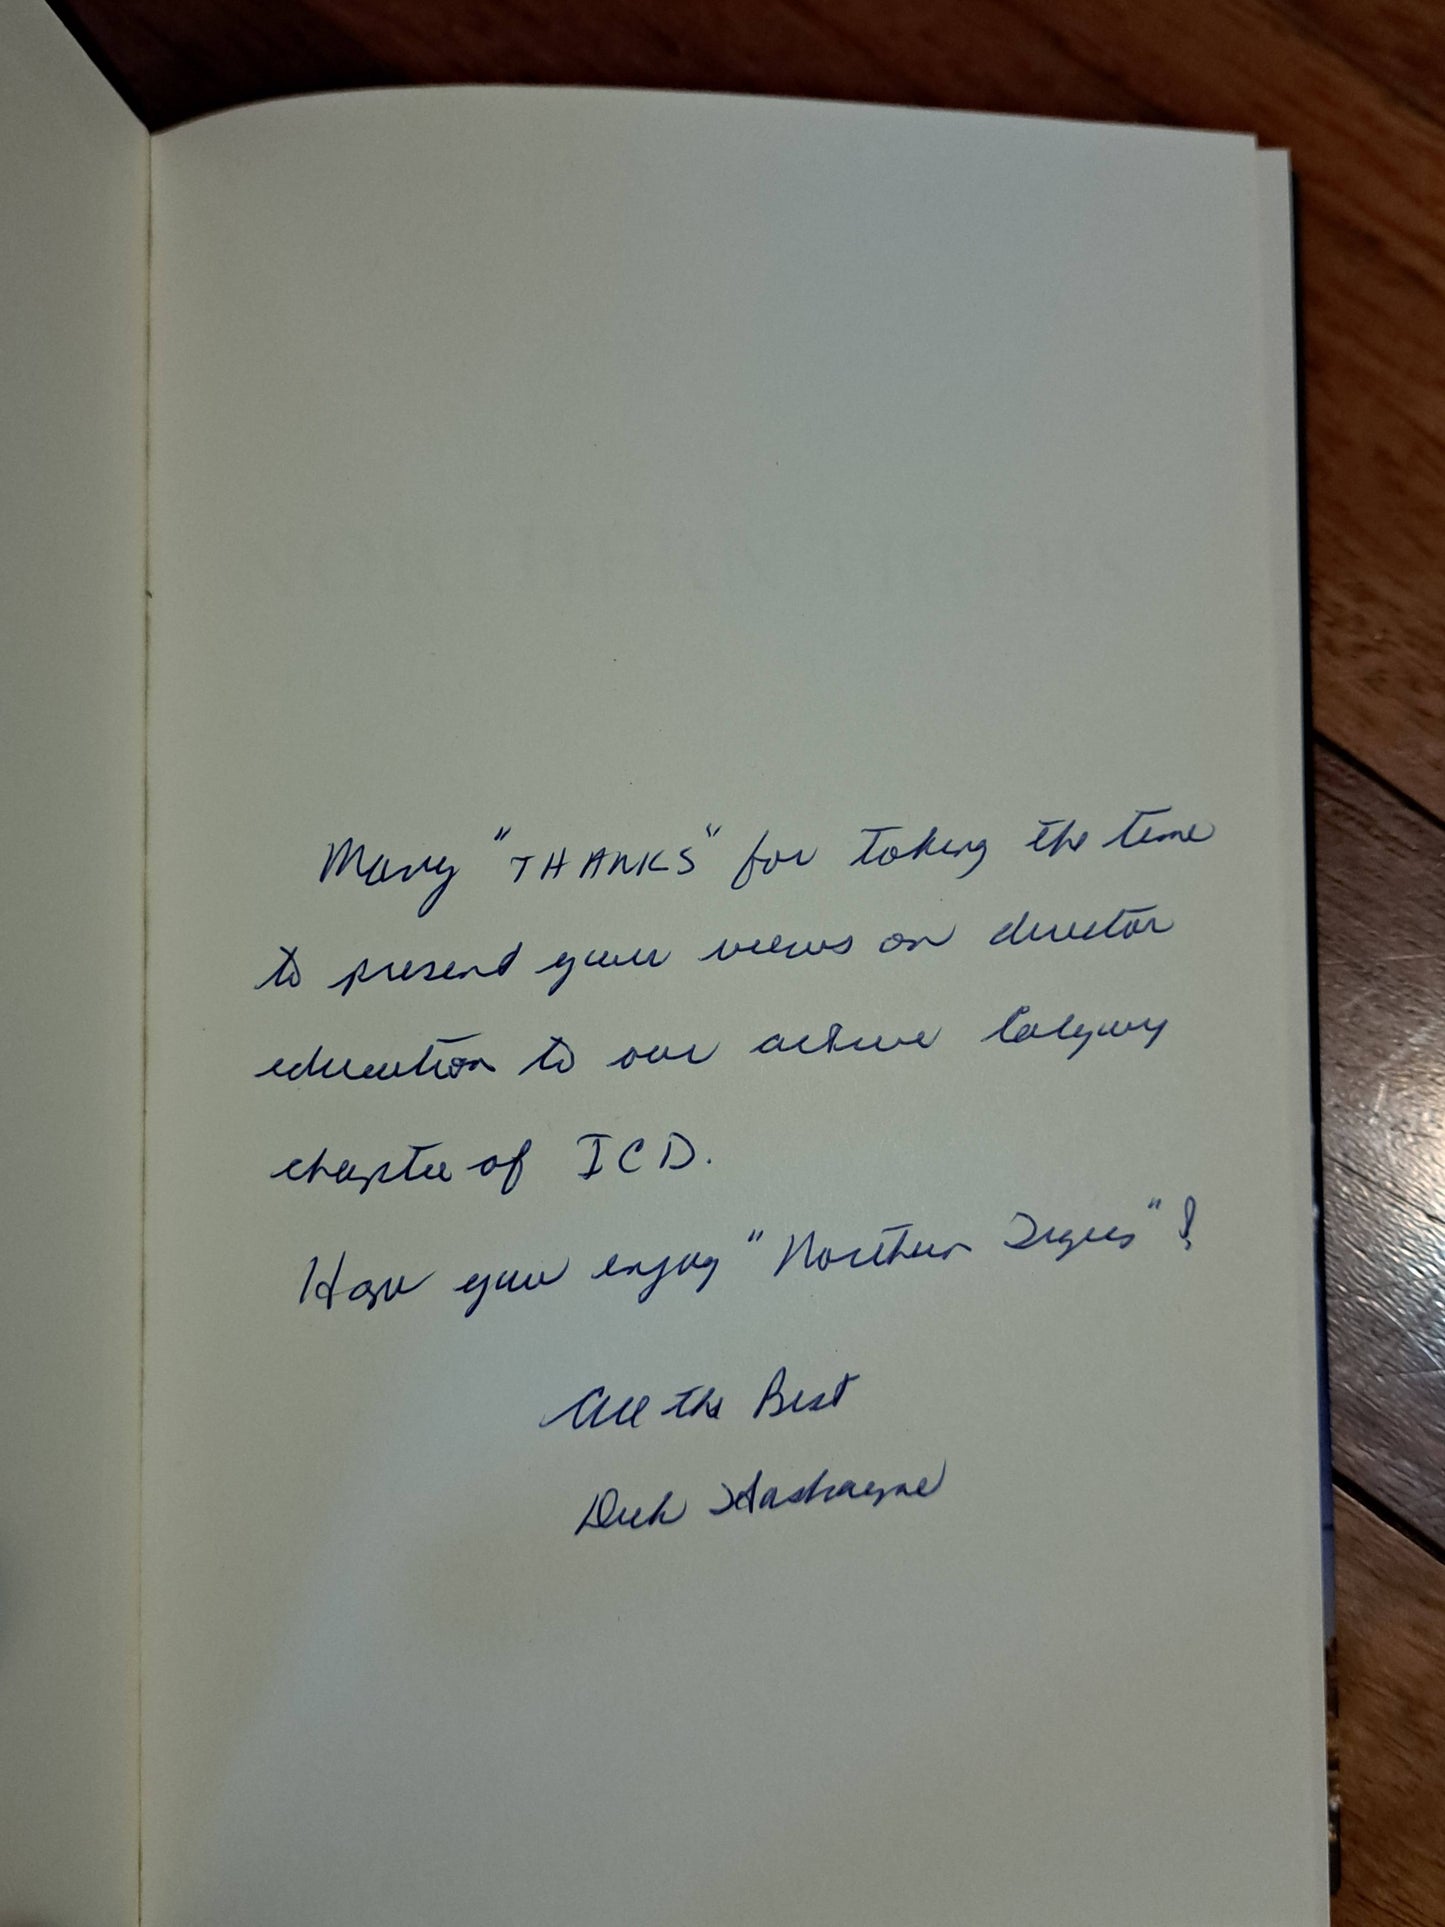 Many "THANKS" for taking the time
to present your views on director
education to our active Calgary
chapter of ICD.
Hope you enjoy "Northern Tigers"!
All the Best
Dick Haskayne